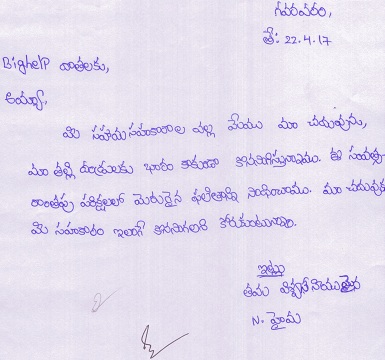 గవరవరం,
తే: 22.4.17
Bighelp దాతలకు,
అయ్యా,
మీ సహాయ సహకారాల వల్ల మేము మా చదువును,
మా తల్లి దండ్రులకు భారం కాకుండా కొనసాగిస్తున్నాము. ఈ సంవత్సర
పరీక్షలలో మెరుగైన ఫలితాన్ని సాధించాము. మా చదువుకు
మీ సహకారం ఇలాగే కొనసాగాలని కోరుకుంటున్నాం.
ఇట్లు
తమ విశ్వసనీయులైన
N. హైమ